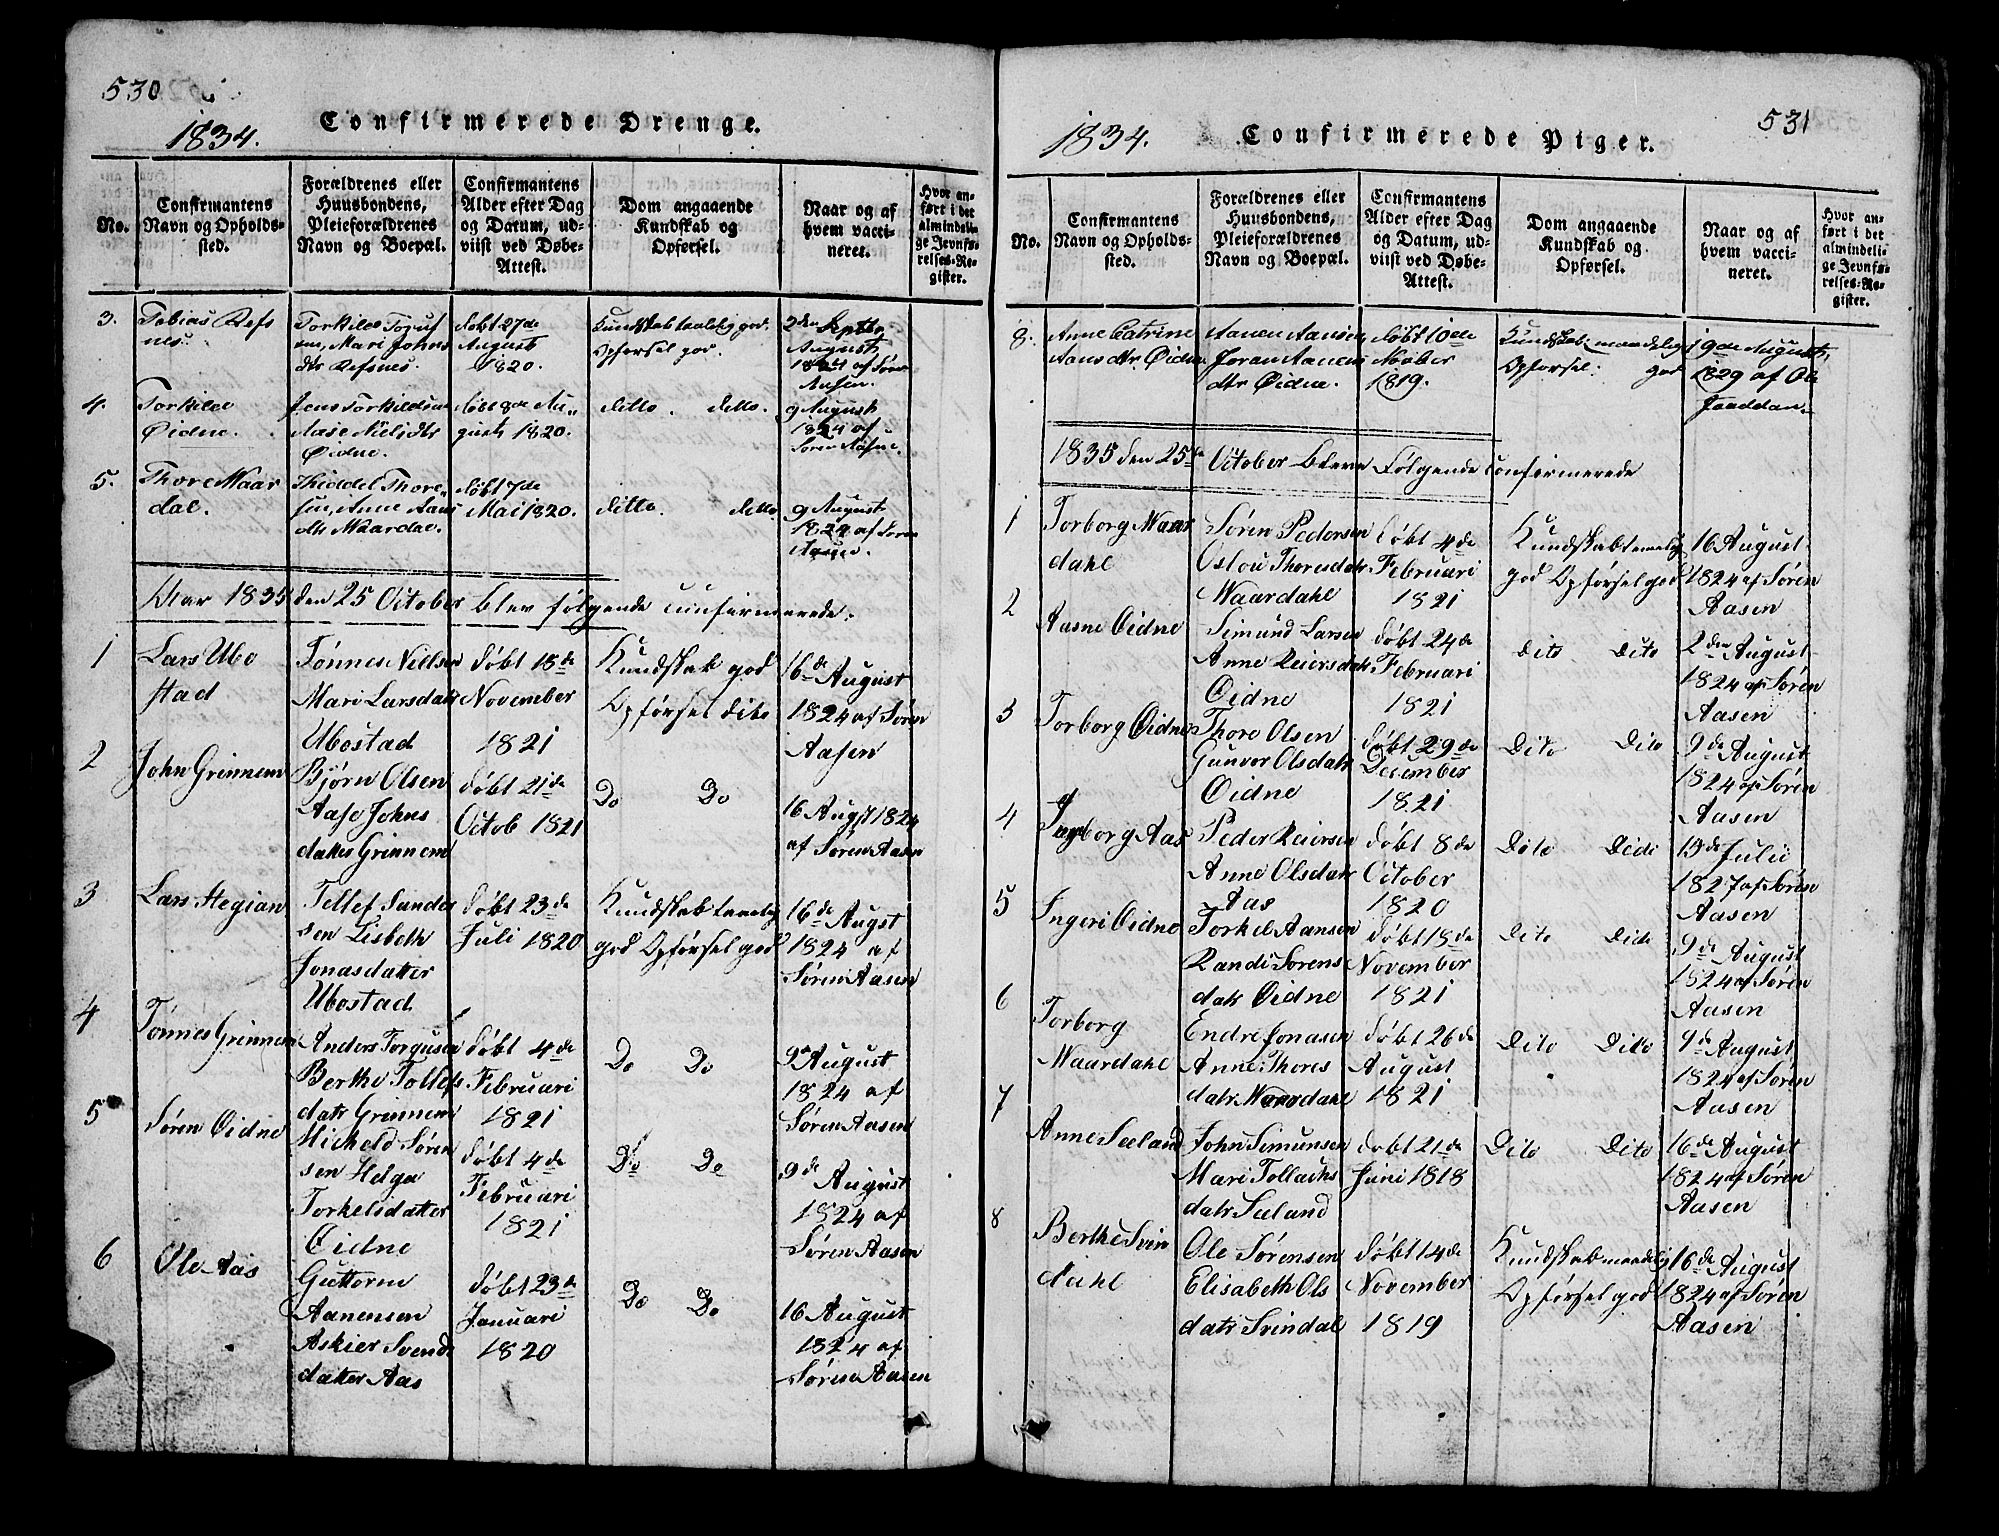 530
1834. Confirmerede Drenge.
No.
Confirmantens Navn og Opholdssted.
Forældrenes eller Huusbondens, Pleieforældrenes Navn og Boepæl.
Confirmantens Alder efter Dag og Datum, udviist ved Døbe-Attest.
Dom angaaende Kundskab og Opførsel.
Naar og af hvem vaccineret.
Hvor anført i det almindelige Jevnførelses-Register.
3. Tobias Refs
nes.
Torkild
sen, Mari Johns
dtr Refsnes.
døbt 27de
August
1820.
Kundskab taalelig god.
Opførsel god.
2den Septbr
August
1824 af Søren
Aasen.
4. Torkild
Øidne.
Jens Torkildsen
Aase Nielsdtr
Øidne.
døbt 8de Au-
gust 1820.
ditto. ditto.
9 August
1824 af
Søren Aasen.
5. Thore Waar
dal.
Thiddel Thore-
sen, Anne Aans
dtr Waardal.
døbt 7de
Mai 1820.
ditto. ditto.
9 August
1824 af Søren
Aasen.
Aar 1835 den 25 October blev følgende confirmerede:
1 Lars Ubo
stad
Tönnes Nielsen
Mari Larsdatr
Ubostad
döbt 18de
November
1821
Kundskab god
Opførsel dito
16de August
1824 af Søren
Aasen
2 John Grinnem
Björn Olsen
Aase Johns
datter Grinnem
döbt 21de
Octob 1821
Do Do
16 Augst 1824
af Søren Aasen
3 Lars Hegian
Tellef Sunder
sen Lisbeth
Jonasdatter
Ubostad
döbt 23de
Juli 1820
Kundskab temelig
god Opförsel god
16de Augst
1824 af
Søren Aasen
4 Tönnes Grinnem
Anders Torgusen
Berthe Tollefs
datr Grinnem
döbt 4de
Februari
1821
Do Do
9de August
1824 af
Søren Aasen
5 Sören Oidne
Michold Sören
sen Helga
Torkelsdatter
Oidne
döbt 4de
Februari
1821
Do Do
9de August
1824 af
Søren Aasen
6 Ole Aas
Guttorm
Aanensen
Askier Svend
datter Aas
döbt 23de
Januari
1820
Do Do
16 August
1824 af
Søren Aasen
531
1834. Confirmerede Piger.
No.
Confirmantens Navn og Opholdssted.
Forældrenes eller Huusbondens, Pleieforældrenes Navn og Boepæl.
Confirmantens Alder efter Dag og Datum, udviist ved Døbe-Attest.
Dom angaaende Kundskab og Opførsel.
Naar og af hvem vaccineret.
Hvor anført i det almindelige Jevnførelses-Register.
8. Anne Catrine
Aansdtr. Øidne
Aanen Aansen
Joran Aanens
dtr Øidne.
døbt 10de
Novber
1819.
Kundskab: maadelig
Opførsel: god
19de August,
1829 af Ole
1835 den 25de October bleve Følgende confirmerede
1 Torborg Waar
dahl
Sören Pedersen
Oslou Thoresdatr
Waardahl
döbt 4de
Februari
1821
Kundskab temelig
god Opförsel god
16 August
1824 af Søren
Aasen
2 Aasne Oidne
Simund Larsen
Anne Reiersdatr
Oidne
döbt 24de
Februari
1821
Dito Dito
2den August
1824 af Søren
Aasen
3 Torborg Oidne
Thore Olsen
Gunvor Olsdatr
Oidne
döbt 29de
December
1821
Dito Dito
9de August
1824 af Søren
Aasen
4 Ingborg Aas
Peder Reiersen
Anne Olsdatr
Aas
döbt 8de
October
1820
Dito Dido
13de Julii
1827 af Søren
Aasen
5 Ingeri Oidne
Torkel Aansen
Randi Sorens
datr Oidne
döbt 18de
November
1821
Dito Dido
9de August
1824 af Søren
Aasen
6 Torborg
Waardahl
Endre Jonasen
Anne Thores
datr Waardahl
döbt 26de
August
1821
Dito Dito
9de August
1824 af Søren
Aasen
7 Anne Seeland
John Simunsen
Mari Tollachs
datr Seeland
döbt 21de
Juni 1818
Dito Dito
16de August
1824 af Søren
Aasen
8 Berthe Svin
dahl
Ole Sörensen
Elisabeth Ols
datr Svindal
döbt 14de
November
1819
Kundskab maadelig
Opförsel god
16de August
1824 af Søren
Aasen